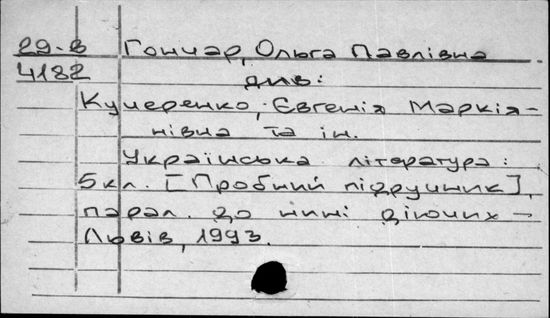 29-в Гончар, Ольга Павлівна
4182 див:
Кучеренко, Євгенія Маркія-
нівна та ін.
Українська література:
5 кл. [Пробний підручник],
парал. до нині діючих –
Львів, 1993.